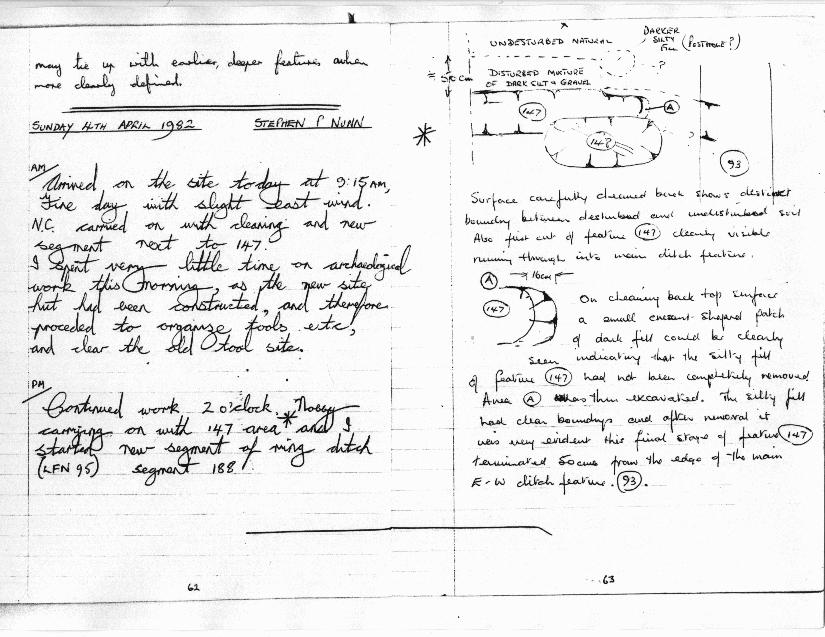 may tie up with earlier, deeper features when
more clearly defined.
SUNDAY 4TH APRIL 1982 STEPHEN P NUNN
AM
Arrived on the site today at 9:15 AM,
Fine day with slight east wind.
N.C. carried on with cleaning and new
segment next to 147.
I spent very little time on archaeological
work this morning, as the new site
hut had been constructed, and therefore
proceded to organise tools etc,
and clear the old tool site.
PM
Continued work 2 o'clock.
carrying on with 147 area * and I
started new segment of ring ditch
(LFN 95) segment 188.
62
*
UNDISTURBED NATURAL
DARKER
SILTY
FILL (POSTHOLE?)
?
DISTURBED MIXTURE
OF DARK SILT & GRAVEL
147
A
147
?
93
Surface carefully cleaned back shows distinct
boundry between disturbed and undisturbed soil
Also first cut of feature 147 clearly visible
running through into main ditch feature.
A 16cm
147
On cleaning back top surface
a small cresent shaped patch
of dark fill could be clearly
seen indicating that the silty fill
of feature 147 had not been completely removed
Area A was then excavated. The silty fill
had clear boundrys and after removal it
was very evident this final stage of feature 147
terminated 50cms from the edge of the main
E-W ditch feature. 93.
63